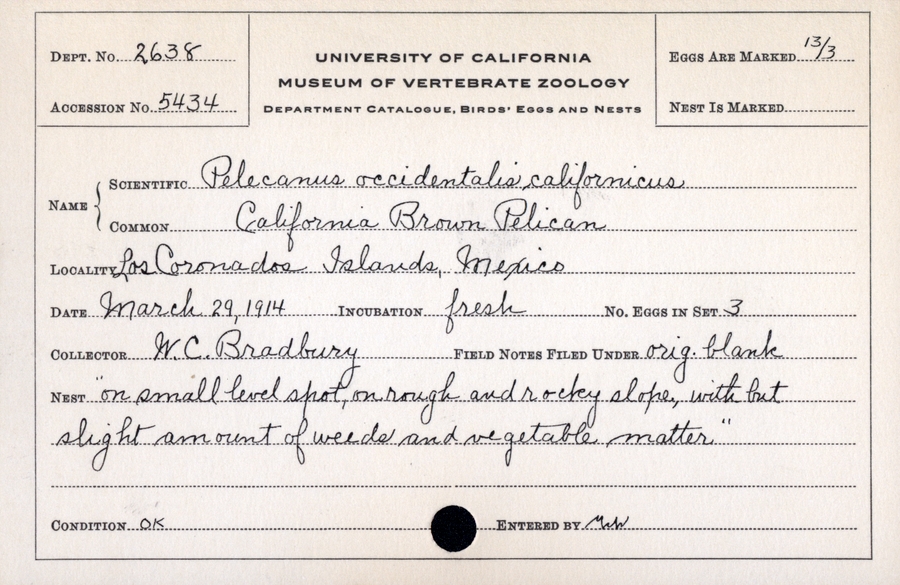 Dept. No. 2638
Accession No. 5434
University of California
Museum of Vertebrate Zoology
Department Catalogue, Birds' Eggs and Nests
Eggs Are Marked 13/3
Nest Is Marked
Name
Scientific Pelecanus occidentalis californicus
Common California Brown Pelican
Locality Los Coronados Islands, Mexico
Date March 29, 1914 Incubation fresh No. Eggs in Set 3
Collector W. C. Bradbury Field Notes Filed Under orig. blank
Nest "on small level spot, on rough and rocky slope, with but
slight amount of weeds and vegetable matter."
Condition OK Entered by